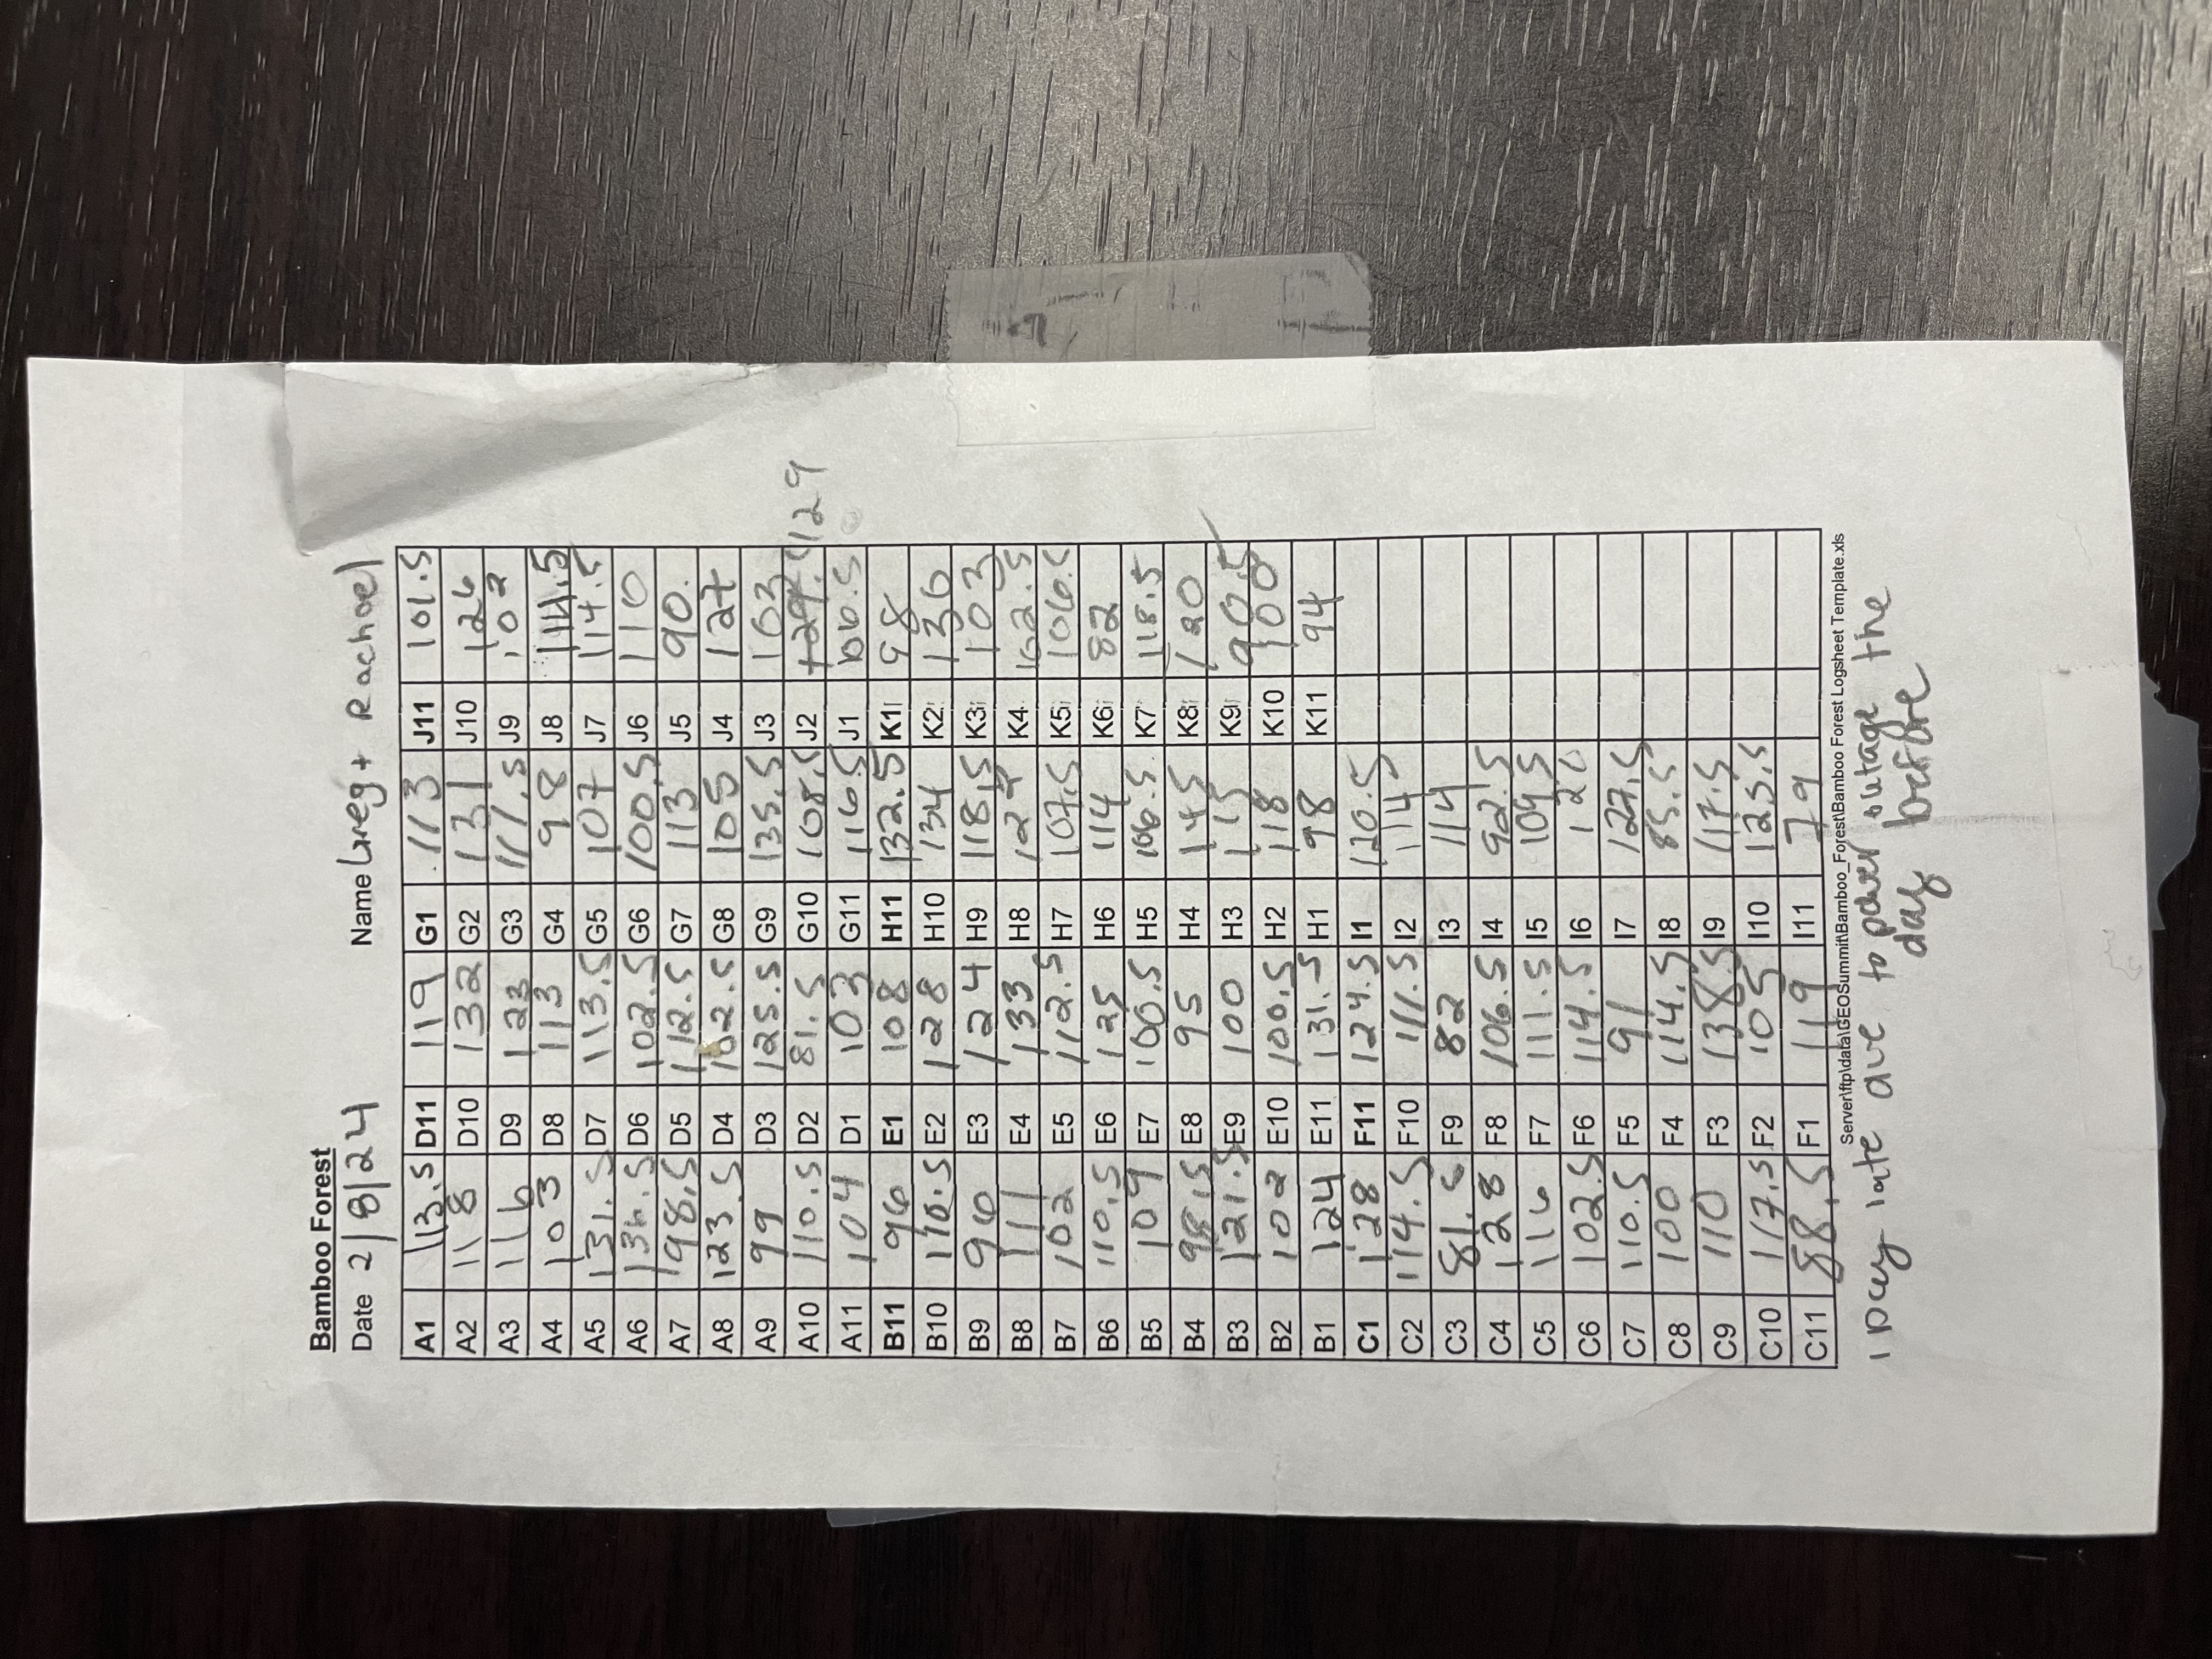 Bamboo Forest
Date 2/8/24 Name Greg + Rachael
A1 113.5 D11 119 G1 113 J11 101.5
A2 118 D10 132 G2 131 J10 126
A3 116 D9 123 G3 111.5 J9 102
A4 103 D8 113 G4 98 J8 111.5
A5 131.5 D7 113.5 G5 107 J7 114.5
A6 136.5 D6 102.5 G6 100.5 J6 110
A7 98.5 D5 112.5 G7 113 J5 90.
A8 123.5 D4 102.5 G8 105 J4 127
A9 99 D3 125.5 G9 135.5 J3 103
A10 110.5 D2 81.5 G10 108.5 J2 129
A11 104 D1 103 G11 116.5 J1
B11 96 E1 108 H11 132.5 K1 98
B10 E2 128 H10 134 K2 136
B9 96 E3 124 H9 118.5 K3 103
B8 111 E4 133 H8 K4 102.5
B7 102 E5 112.5 H7 107.5 K5 106.5
B6 110.5 E6 125 H6 114 K6 82
B5 109 E7 100.5 H5 106.5 K7 118.5
B4 98.5 E8 95 H4 K8 120
B3 121.5 E9 100 H3 115 K9 90.5
B2 102 E10 100.5 H2 118 K10 100
B1 124 E11 131.5 H1 98 K11 94
C1 128 F11 124.5 I1 120.5
C2 114.5 F10 111.5 I2 114
C3 81.5 F9 82 I3 114
C4 128 F8 106.5 I4 92.5
C5 116 F7 111.5 I5 109.5
C6 102.5 F6 114.5 I6 120
C7 110.5 F5 91 I7 127.5
C8 100 F4 114.5 I8 85.5
C9 110 F3 138.5 I9 117.5
C10 117.5 F2 105 I10 123.5
C11 88.5 F1 119 I11 79
Server\ftp\data\GEOSummit\Bamboo_Forest\Bamboo Forest Logsheet Template.xls
1 Day late due to power outage the
day before